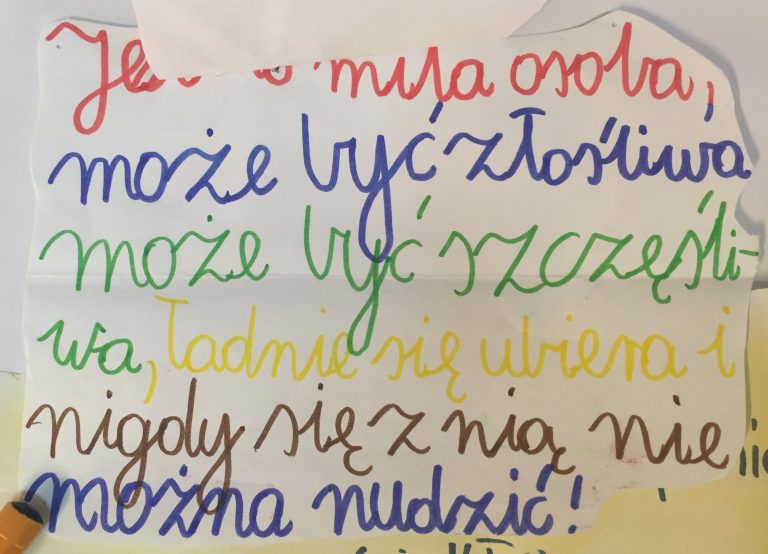 Jest to miła osoba,
może być złośliwa
może być szczęśli-
wa, ładnie się ubiera i
nigdy się z nią nie
można nudzić!